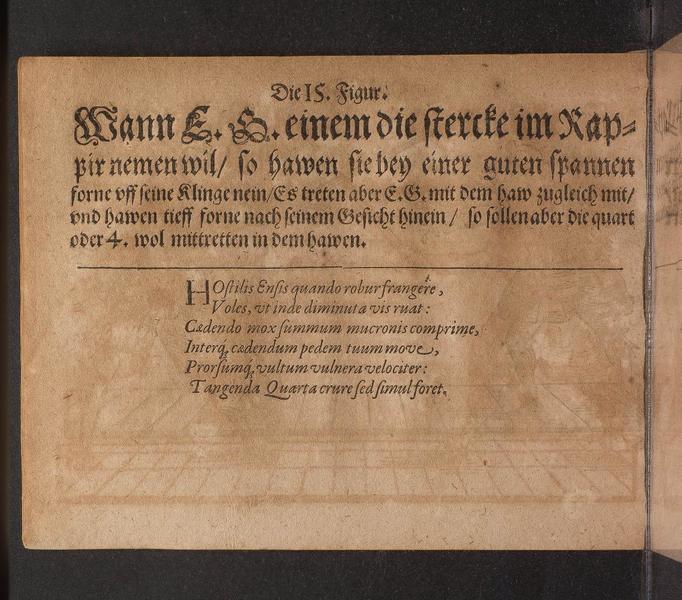 Die 15. Figur.
Wann E. G. einem die stercke im Rap-
pir nemen wil/ so hawen sie bey einer guten spannen
forne vff seine Klinge nein/Es treten aber E.G. mit dem haw zugleich mit/
vnd hawen tieff forne nach seinem Gesicht hinein / so sollen aber die quart
oder 4. wol mittretten in dem hawen.
HOstilis Ensis quando robur frangere,
Voles, vt inde diminuta vis ruat:
Cædendo mox summum mucronis comprime,
Interq́, cædendum pedem tuum move,
Prorsumq́, vultum vulnera velociter:
Tangenda Quarta crure sed simul foret.